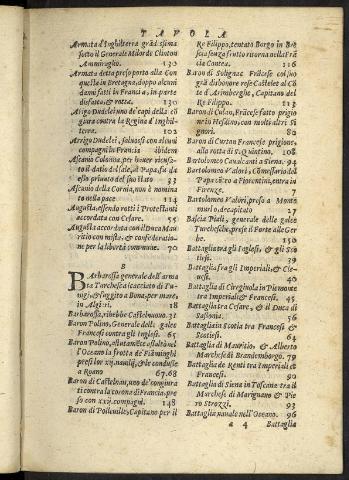 TAVOLA
Armata d'Inghilterra grādissima
sotto il Generale Milord de Clinton
Ammiraglio. 130
Armata detta preso porto alla Con
questa in Bretagna, doppo alcuni
danni fatti in Francia, in parte
disfatta, & rotta. 130
Arigo Dudelei un de' capi della cō
giura contra la Regina d'Inghil-
terra. 102
Arrigo Dudelei, saluosi con alcuni
compagni in Francia ibidem
Ascanio Colonna, per hauer ricusa-
to il datio del sale, al Papa fu da
esso priuato del suo stato 33
Ascanio della Cornia, non è nomina
to nella pace 114
Augusta, e esso lo rotti i Protestanti
accordata con Cesare. 55
Augusta accordata con il Duca Mau
ritio con mista, & confederatio-
ne per la libertà commune. 70
B
Barbarossa generale dell'arma
ta Turchesca iscacciato di Tu-
nigi, & fuggito a Bona, per mare,
in Algieri. 18
Barbarossa, ribebbe Castelnuouo. 31
Baron Polino, Generale delle galee
Francesi contra gli Inglesi. 65
Baron Polino, astutamēte assaltò nel
l'Oceano la frotta de' Fiāminghi
presi lor xxj. nauilij, & le condusse
a Roano 67.68
Baron di Castelnau, uno de' congiura
ti contra la corona di Francia, pre
so con xxij. compagni. 148
Baron di Poileuille, Capitano per il
Re Filippo, tentato Borgo in Bre
scia senza frutto ritorna nella Frā
cia Contea. 116
Baron di Solignac Frācese col suo
grā disbonore rese Castelet al Cō
te d'Arimberghe, Capitano del
Re Filippo. 113
Baron di Culan, Frācese fatto prigio
ne in Hesdino, con molti altri Si
gnori. 80
Baron di Curton Francese prigione,
alla rotta di S. Quintino. 108
Bartolomeo Caualcanti a Siena. 94
Bartolomeo Valori, Comessario del
Papa uscito a Fiorentini, entra in
Firenze. 7
Bartolomeo Valori, preso a Monte
murlo, decapitato 27
Bassia Piali, generale delle galee
Turchesche, prese il Forte alle Ger
be. 150
Battaglia tra gli Inglesi, & gli Sco
tiesi. 39
Battaglia fra gli Imperiali, & Cie-
uesi. 40
Battaglia di Ciregiuola in Piemonte
tra Imperiali & Francesi. 45
Battaglia tra Cesare, & il Duca di
Sassonia. 56
Battaglia in Scotia tra Francesi &
Scotiesi. 64
Battaglia di Mauritio, & Alberto
Marchese di Brandemborgo. 79
Battaglia de Renti tra Imperiali et
Francesi. 90
Battaglia di Siena in Toscana tra il
Marchese di Marignano & Pie
ro Strozzi. 93
Battaglia nauale nell'Oceano. 96
a 4 Battaglia